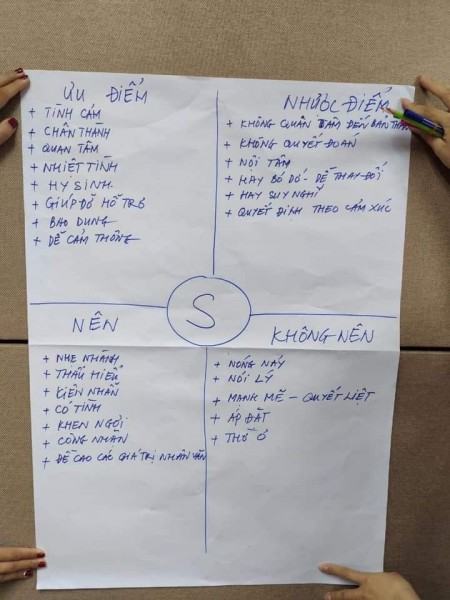 ƯU ĐIỂM
+ TÌNH CẢM
+ CHÂN THÀNH
+ QUAN TÂM
+ NHIỆT TÌNH
+ HY SINH
+ GIÚP ĐỠ HỖ TRỢ
+ BAO DUNG
+ DỄ CẢM THÔNG
NHƯỢC ĐIỂM
+ KHÔNG QUAN TÂM ĐẾN BẢN THÂN
+ KHÔNG QUYẾT ĐOÁN
+ NỘI TÂM
+ HAY BỎ DỞ DỄ THAY ĐỔI
+ HAY SUY NGHĨ
+ QUYẾT ĐỊNH THEO CẢM XÚC
S
NÊN
+ NHẸ NHÀNG
+ THẤU HIỂU
+ KIÊN NHẪN
+ CÓ TÌNH
+ KHEN NGỢI
+ CÔNG NHẬN
+ ĐỀ CAO CÁC GIÁ TRỊ NHÂN VĂN
KHÔNG NÊN
+ NÓNG NẢY
+ NÓI LÝ
+ MẠNH MẼ - QUYẾT LIỆT
+ ÁP ĐẶT
+ THỜ Ơ